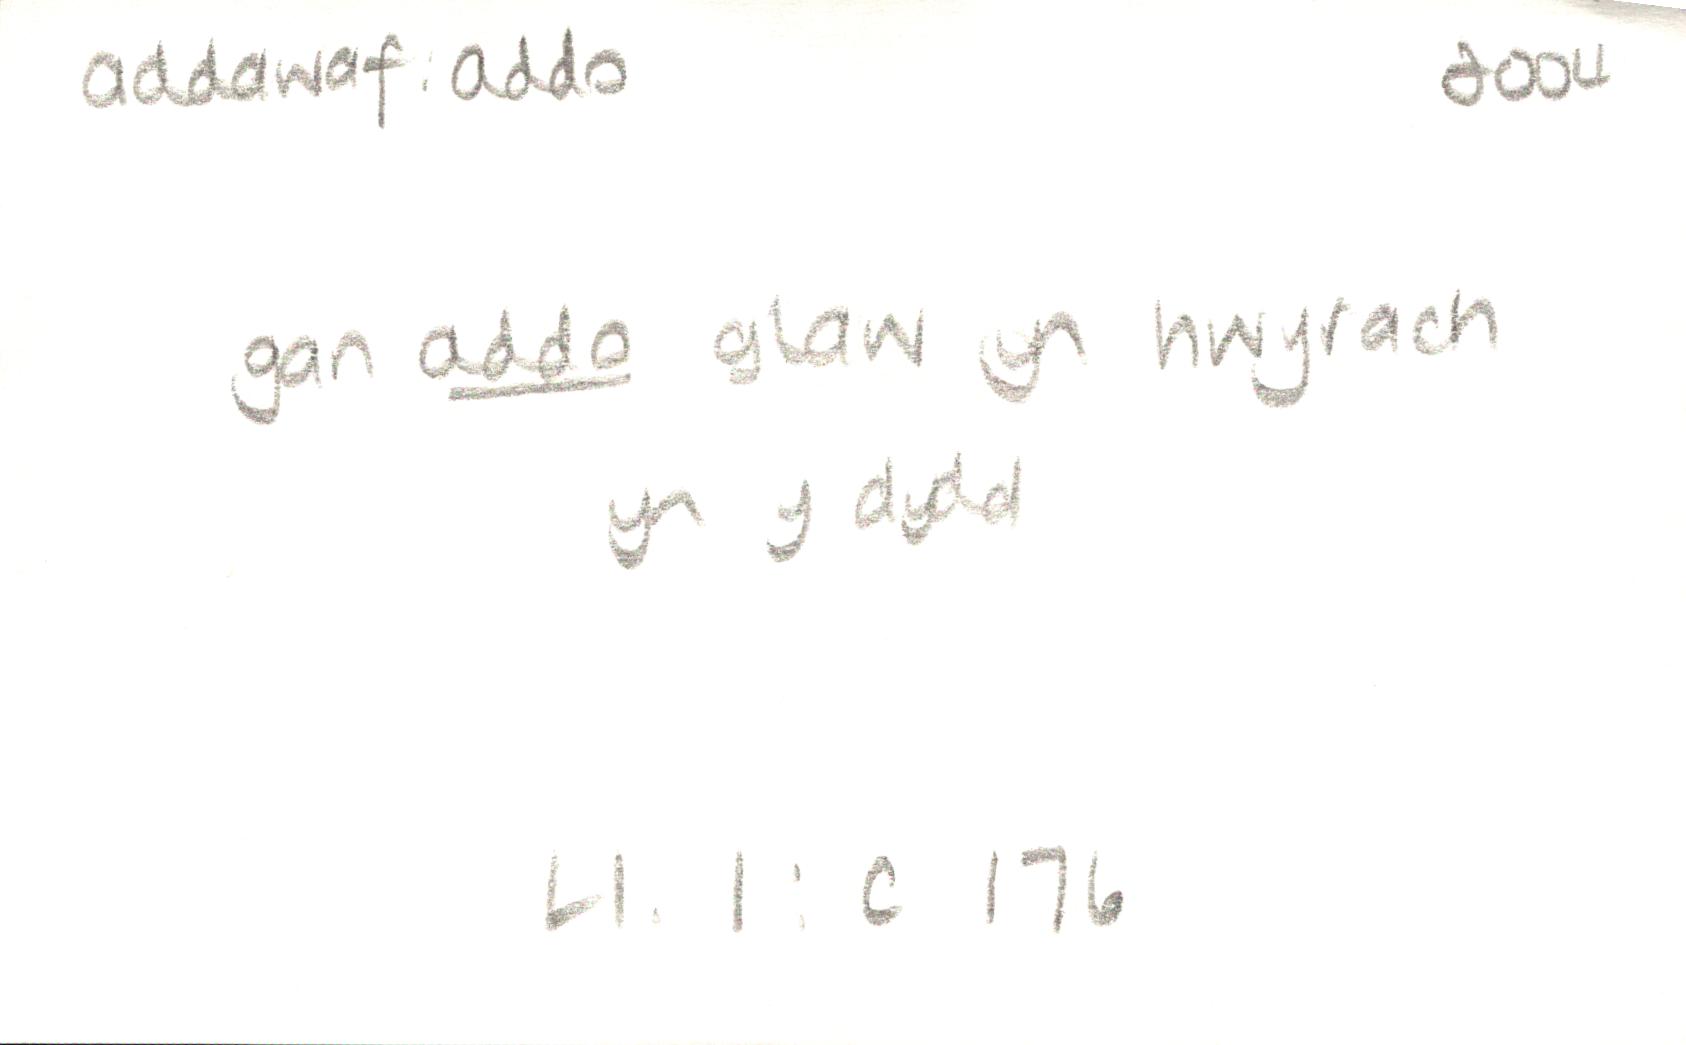 addawaf: addo 2004
gan addo glaw yn hwyrach
yn y dydd
Ll. 1: C 176